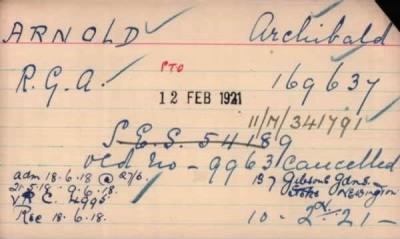 ARNOLD Archibald
R.G.A. PTO 169637
12 FEB 1921
11/M/341791
S.E.S 54189
old no - 9963/Cancelled
adm 18.6.18 @ 27/6. 137 Gibsons Gdns.
21.5.18 - 9.6.18. Stoke Newington
VR C. 4995
Rec 18.6.18. 10-2-21-